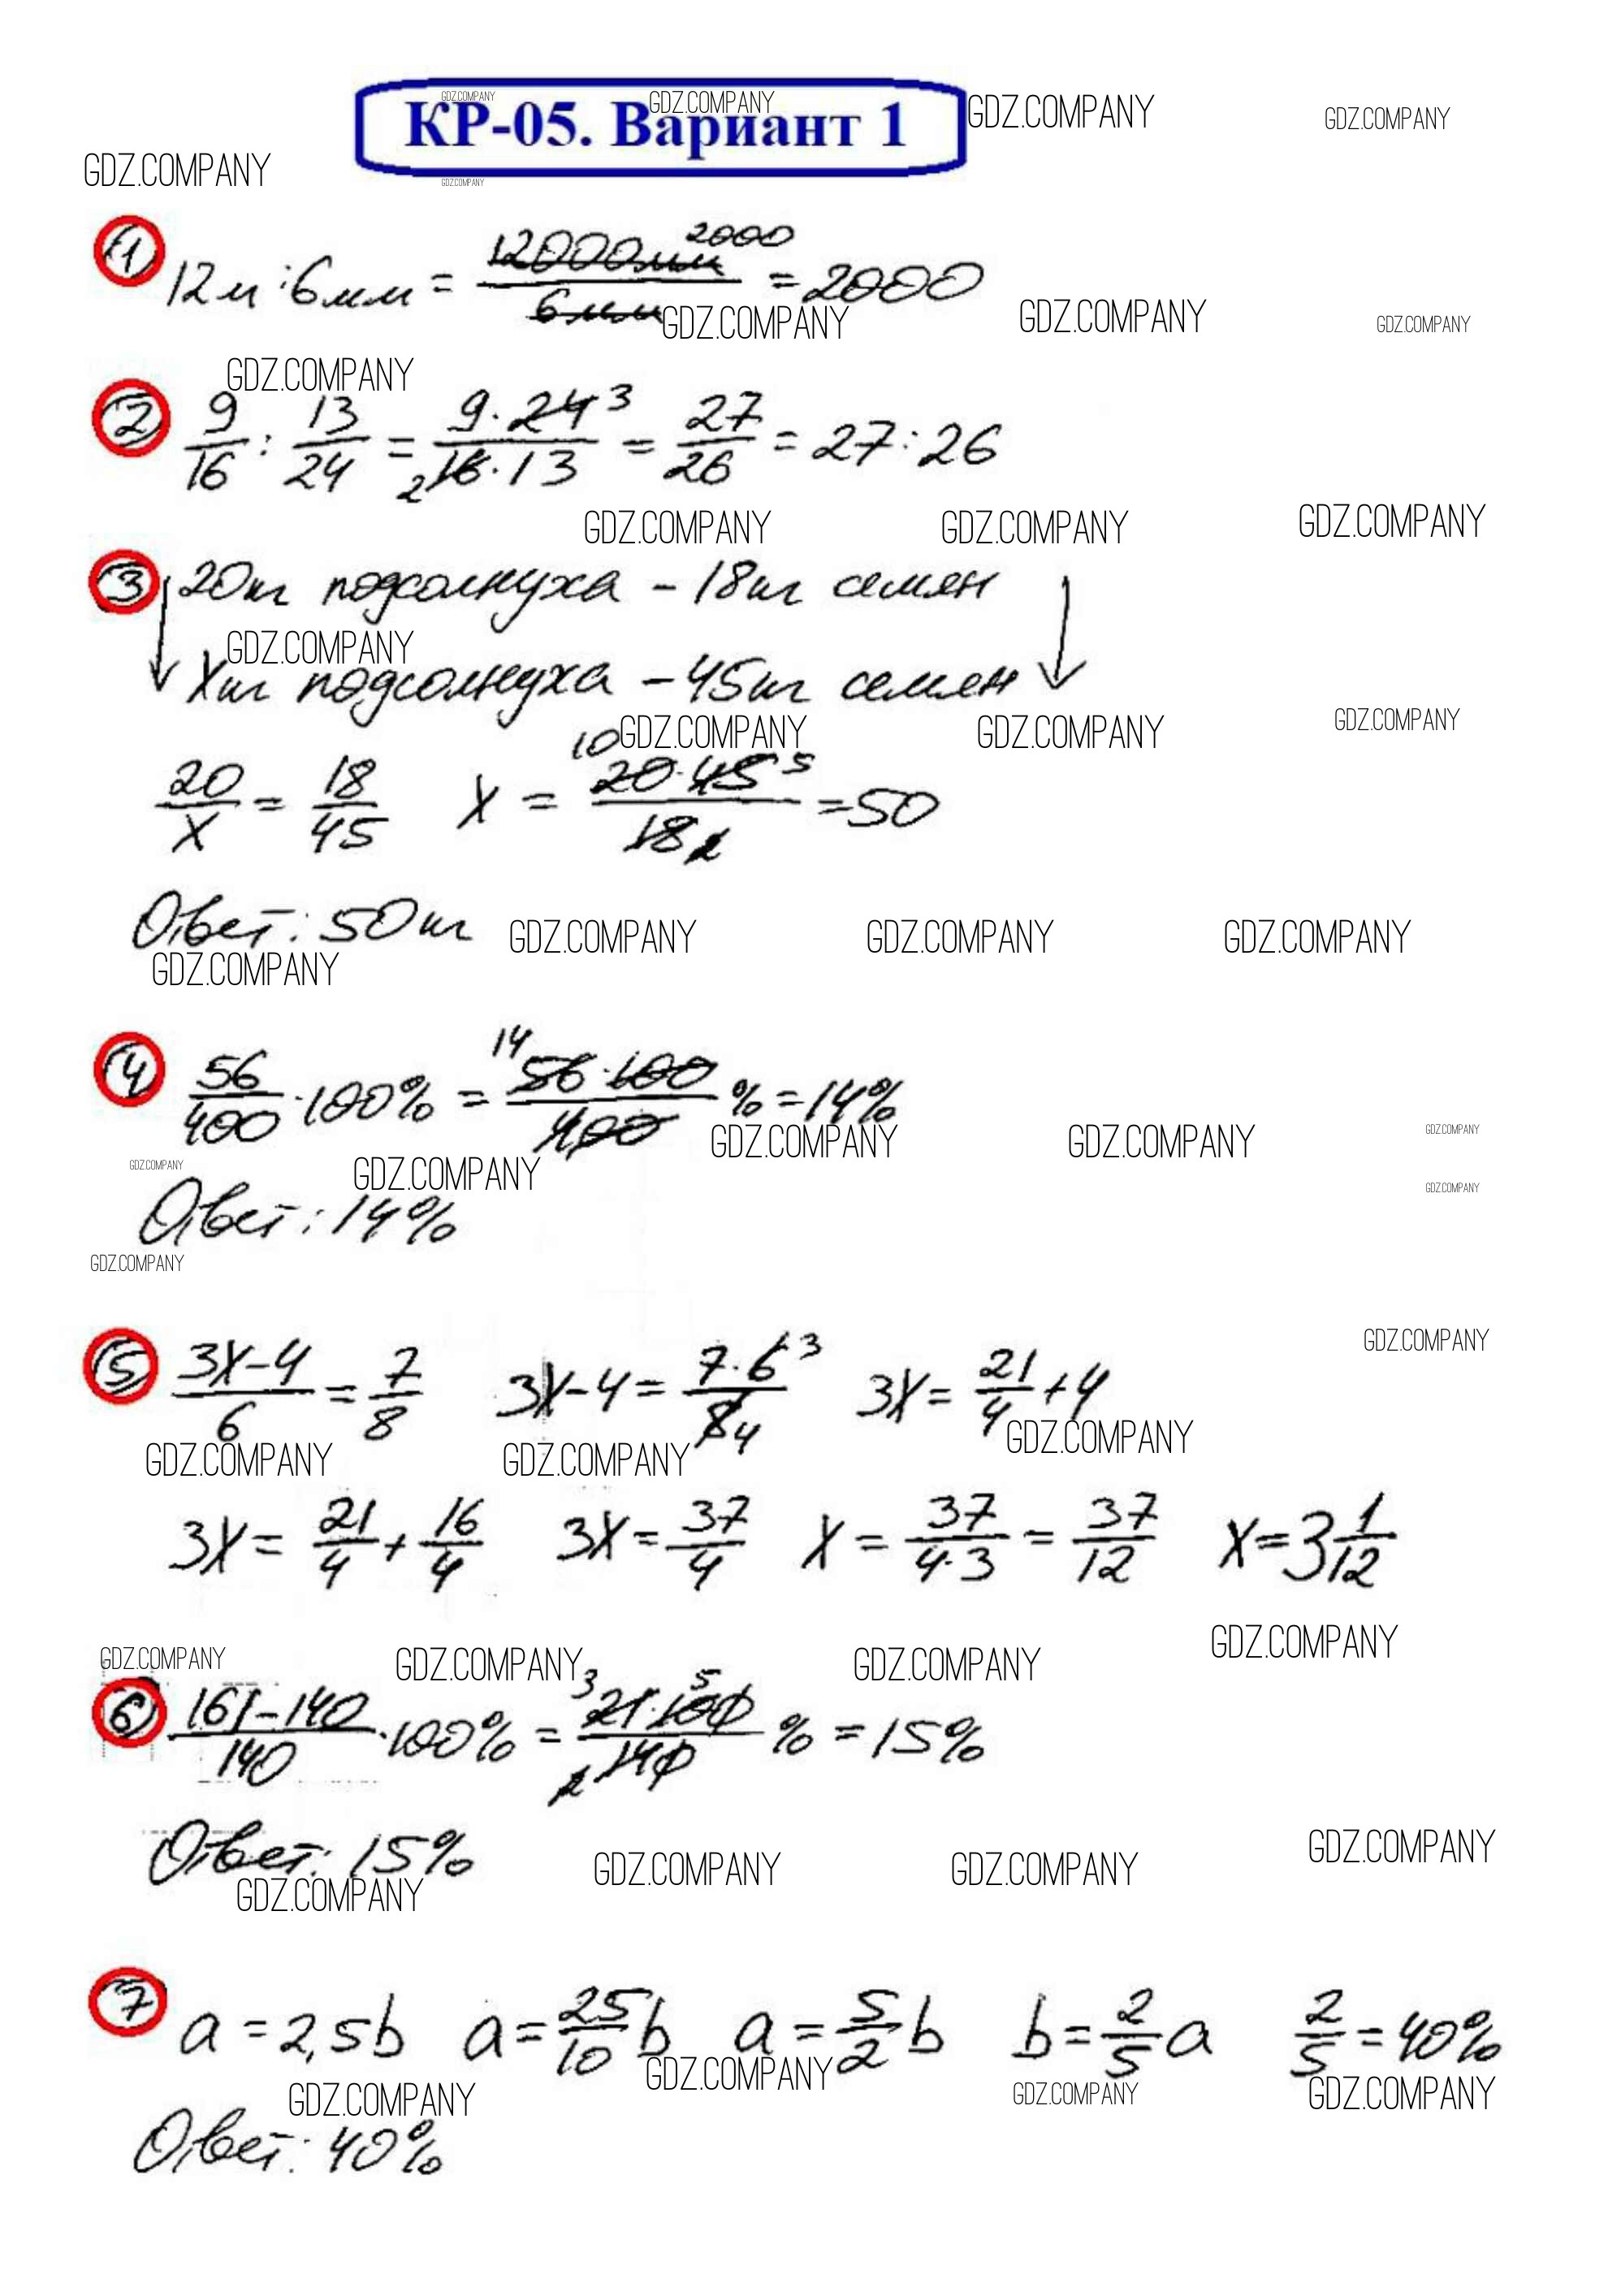 GDZ.COMPANY GDZ.COMPANY GDZ.COMPANY GDZ.COMPANY
КР-05. Вариант 1
GDZ.COMPANY GDZ.COMPANY
1 12м : 6мм = 12000мм 2000 / 6мм = 2000
GDZ.COMPANY GDZ.COMPANY GDZ.COMPANY
GDZ.COMPANY
2 9/16 : 13/24 = 9·24 3 / 2 16·13 = 27/26 = 27:26
GDZ.COMPANY GDZ.COMPANY GDZ.COMPANY
3 20кг подсолнуха – 18кг семян
GDZ.COMPANY
Xкг подсолнуха – 45кг семян
GDZ.COMPANY GDZ.COMPANY GDZ.COMPANY
20/X = 18/45 X = 10 20·45 5 / 18 2 = 50
Ответ: 50кг GDZ.COMPANY GDZ.COMPANY GDZ.COMPANY
GDZ.COMPANY
4 56/400 · 100% = 14 56·100 / 400 % = 14%
GDZ.COMPANY GDZ.COMPANY GDZ.COMPANY
GDZ.COMPANY GDZ.COMPANY GDZ.COMPANY
Ответ: 14%
GDZ.COMPANY
GDZ.COMPANY
5 3X–4/6 = 7/8 3X–4 = 7·6 3 / 8 4 3X = 21/4 + 4
GDZ.COMPANY GDZ.COMPANY GDZ.COMPANY
3X = 21/4 + 16/4 3X = 37/4 X = 37/4·3 = 37/12 X = 3 1/12
GDZ.COMPANY GDZ.COMPANY GDZ.COMPANY GDZ.COMPANY
6 161–140/140 · 100% = 3 21·100 5 / 2 140 % = 15%
Ответ: 15% GDZ.COMPANY GDZ.COMPANY GDZ.COMPANY
GDZ.COMPANY
7 a = 2,5b a = 25/10 b a = 5/2 b b = 2/5 a 2/5 = 40%
GDZ.COMPANY GDZ.COMPANY GDZ.COMPANY GDZ.COMPANY
Ответ: 40%